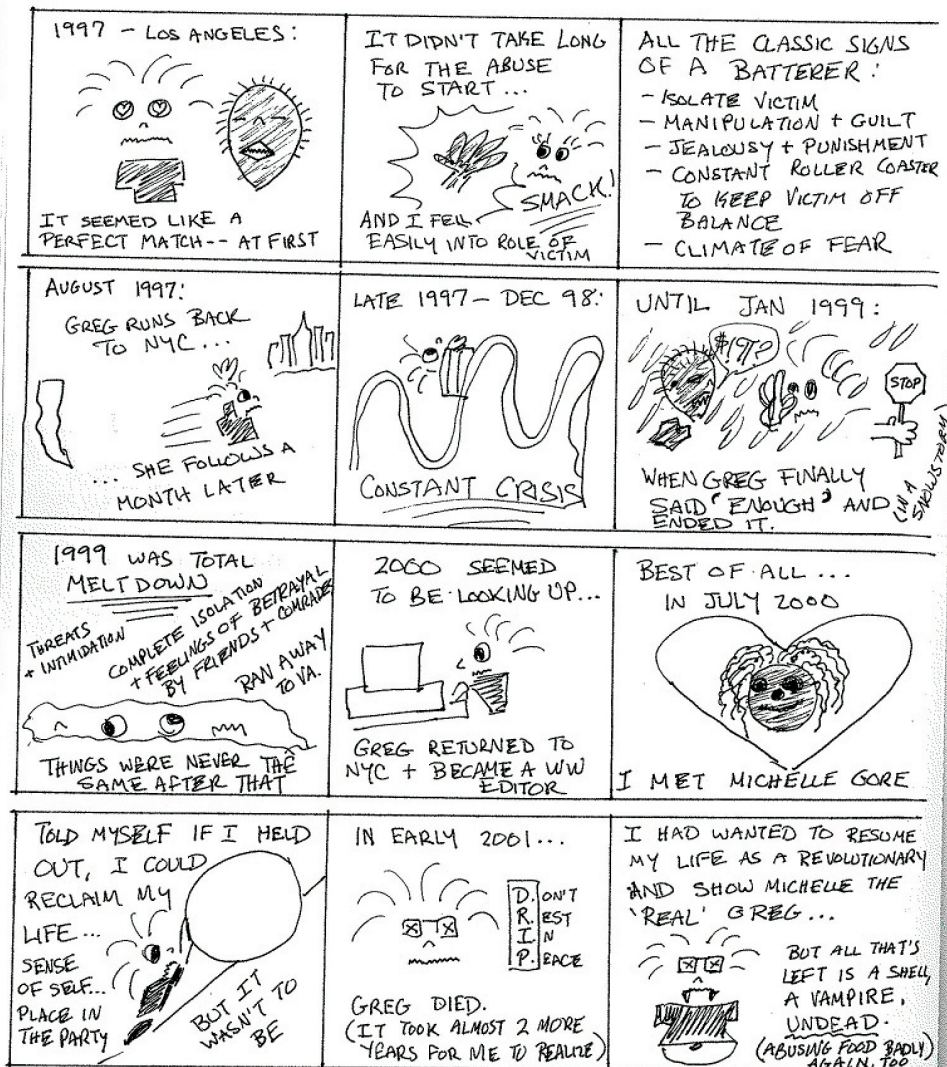 1997 - LOS ANGELES:
IT SEEMED LIKE A
PERFECT MATCH -- AT FIRST
IT DIDN'T TAKE LONG
FOR THE ABUSE
TO START...
SMACK!
AND I FELL
EASILY INTO ROLE OF
VICTIM
ALL THE CLASSIC SIGNS
OF A BATTERER:
- ISOLATE VICTIM
- MANIPULATION + GUILT
- JEALOUSY + PUNISHMENT
- CONSTANT ROLLER COASTER
TO KEEP VICTIM OFF
BALANCE
- CLIMATE OF FEAR
AUGUST 1997:
GREG RUNS BACK
TO NYC...
... SHE FOLLOWS A
MONTH LATER
LATE 1997 - DEC 98:
CONSTANT CRISIS
UNTIL JAN 1999:
STOP
WHEN GREG FINALLY
SAID 'ENOUGH' AND
ENDED IT.
(IN A
SNOWSTORM)
1999 WAS TOTAL
MELTDOWN
THREATS
+ INTIMIDATION
COMPLETE ISOLATION
+ FEELINGS OF BETRAYAL
BY FRIENDS + COMRADES
RAN AWAY
TO VA.
THINGS WERE NEVER THE
SAME AFTER THAT
2000 SEEMED
TO BE LOOKING UP...
GREG RETURNED TO
NYC + BECAME A WW
EDITOR
BEST OF ALL...
IN JULY 2000
I MET MICHELLE GORE
TOLD MYSELF IF I HELD
OUT, I COULD
RECLAIM MY
LIFE...
SENSE
OF SELF...
PLACE IN
THE PARTY
BUT IT
WASN'T TO
BE
IN EARLY 2001...
D.ON'T
R.EST
I.N
P.EACE
GREG DIED.
(IT TOOK ALMOST 2 MORE
YEARS FOR ME TO REALIZE)
I HAD WANTED TO RESUME
MY LIFE AS A REVOLUTIONARY
AND SHOW MICHELLE THE
'REAL' GREG...
BUT ALL THAT'S
LEFT IS A SHELL,
A VAMPIRE,
UNDEAD.
(ABUSING FOOD BADLY
AGAIN, TOO